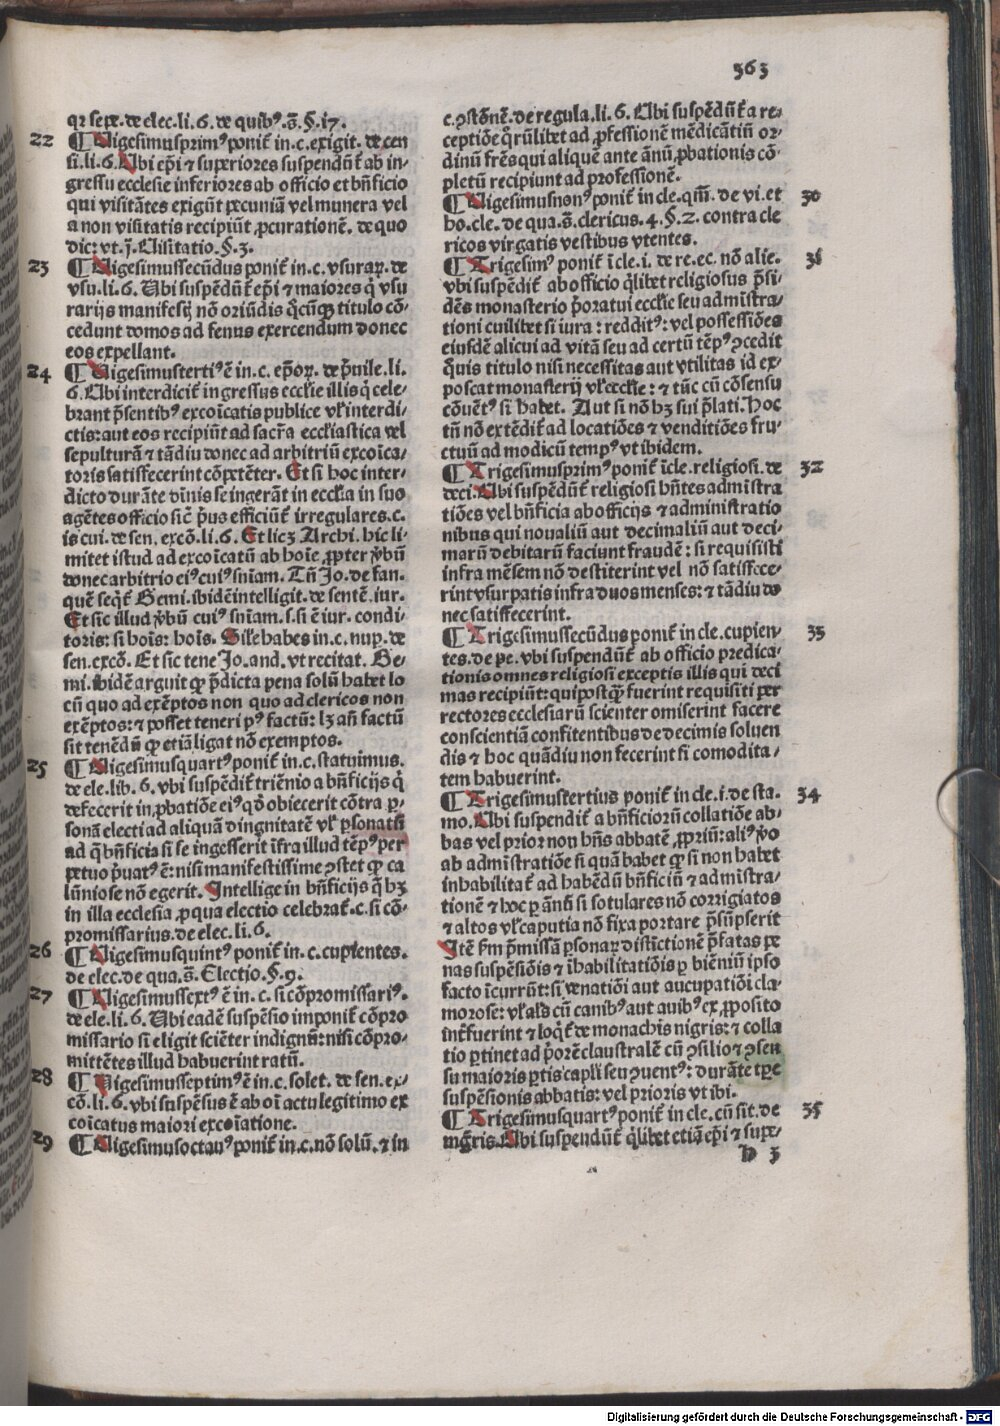 363
qꝛ sepe.de elec.li.6.de quibꝰ.s̄.§.17.
22
¶ Uigesimusprimꝰ ponit̄ in.c.exigit.de cen
si.li.6.Ubi ep̄i ⁊ superiores suspendūt̄ ab in⸗
gressu ecclesie inferiores ab officio et bn̄ficio
qui visitātes exigūt pecuniā vel munera vel
a non visitatis recipiūt ꝓcurationē. de quo
dic: vt.j̄.Uisitatio.§.3.
23
¶ Uigesimussecūdus ponit̄ in.c.vsuraꝝ.de
vsu.li.6. Ubi suspēdūt̄ ep̄i ⁊ maiores q̄ vsu
rarijs manifestj nō oriūdis q̄cūqꝫ titulo cō⸗
cedunt domos ad fenus exercendum donec
eos expellant.
24
¶ Uigesimustertiꝰ ē in.c.ep̄oꝝ.de p̄uile.li.
6.Ubi interdicit̄ ingressus eccl'ie illis q̄ cele⸗
brant p̄sentibꝰ excōicatis publice vl' interdi⸗
ctis:aut eos recipiūt ad sacr̄a eccl'iastica vel
sepulturā ⁊ tādiu donec ad arbitriū excōica⸗
toris satisfecerint cōpetēter. Et si hoc inter⸗
dicto durāte diuīs se ingerāt in eccl'ia in suo
agētes officio sic̄ p̄us efficiūt̄ irregulares.c.
is cui.de sen.excō.li.6. Et licꝫ Archi. hic li⸗
mitet istud ad excōicatū ab hoīe ꝓpter v̄bū
donec arbitrio eiꝰ cuiꝰ sn̄iam. Tn̄ Jo.de fan.
quē seqt̄ Gemi.ibidē intelligit.de sentē.iur.
Et sic illud v̄bū cuiꝰ sn̄iam.s.si ē iur. condi⸗
toris: si hoīs: hoīs. Sil'e habes in.c.nuꝑ.de
sen.excō. Et sic tene Jo.and.vt recitat. Ge⸗
mi.ibidē arguit qꝙ p̄dicta pena solū habet lo
cū quo ad exēptos non quo ad clericos non
exēptos:⁊ posset teneri pꝰ factū: lꝫ an̄ factū
sit tenēdū qꝙ etiā ligat nō exemptos.
25
¶ Uigesimusquartꝰ ponit̄ in.c.statuimus.
de ele.lib.6.vbi suspēdit̄ triēnio a bn̄ficijs q̄
defecerit in ꝓbatiōe eiꝰ qd̄ obiecerit cōtra ꝑ⸗
sonā electi ad aliquā dingnitatē vl' ꝑsonatū
ad q̄ bn̄ficia si se ingesserit īfra illud tēpꝰ per
petuo p̄uatꝰ ē: nisi manifestissime ꝯstet qꝙ ca
lūniose nō egerit. Intellige in bn̄ficijs q̄ hꝫ
in illa ecclesia ꝓ qua electio celebrat̄.c.si cō⸗
promissarius.de elec.li.6.
26
¶ Uigesimusquintꝰ ponit̄ in.c.cupientes.
de elec.de qua.s̄. Electio.§.9.
27
¶ Uigesimussextꝰ ē in.c.si cōpromissariꝰ.
de ele.li.6. Ubi eadē suspēsio imponit̄ cōpro
missario si eligit sciēter indignū: nisi cōpro⸗
mittētes illud habuerint ratū.
28
¶ Uigesimusseptimꝰ ē in.c.solet. de sen.ex⸗
cō.li.6.vbi suspēsus ē ab oī actu legitimo ex
cōicatus maiori excōiatione.
29
¶ Uigesimusoctauꝰ ponit̄ in.c.nō solū.⁊ in
c.ꝯstōnē.de regula.li.6. Ubi suspēdūt̄ a re⸗
ceptiōe q̄rūlibet ad ꝓfessionē mēdicātiū or⸗
dinū fr̄es qui aliquē ante ānū ꝓbationis cō⸗
pletū recipiunt ad professionē.
30
¶ Uigesimusnonꝰ ponit̄ in cle.qm̄.de vi.et
ho.cle.de qua.s̄.clericus.4.§.2.contra cle
ricos virgatis vestibus vtentes.
31
¶ Trigesimꝰ ponit̄ ī cle.i.de re.ec.nō alie.
vbi suspēdit̄ ab officio q̄libet religiosus p̄si⸗
dēs monasterio p̄oratui eccl'ie seu admīstra⸗
tioni cuilibet si iura: redditꝰ: vel possessiōes
eiusdē alicui ad vitā seu ad certū tēpꝰ ꝯcedit
quis titulo nisi necessitas aut vtilitas id ex⸗
poscat monasterij vl' eccl'ie: ⁊ tūc cū cōsensu
cōuētꝰ si habet. Aut si nō hꝫ sui p̄lati. Hoc
tn̄ nō extēdit̄ ad locatiōes ⁊ venditiōes fru⸗
ctuū ad modicū tempꝰ vt ibidem.
32
¶ Trigesimusprimꝰ ponit̄ ī cle.religiosi.de
deci. Ubi suspēdūt̄ religiosi bn̄tes admīstra
tiōes vel bn̄ficia ab officijs ⁊ administratio
nibus qui noualiū aut decimaliū aut deci⸗
marū debitarū faciunt fraudē: si requisiti
infra mēsem nō destiterint vel nō satisfece⸗
rint vsurpatis infra duos menses: ⁊ tādiu do
nec satisfecerint.
33
¶ Trigesimussecūdus ponit̄ in cle.cupien⸗
tes.de pe.vbi suspendūt̄ ab officio predica⸗
tionis omnes religiosi exceptis illis qui deci
mas recipiūt: qui postqꝫ fuerint requisiti per
rectores ecclesiarū scienter omiserint facere
conscientiā confitentibus de decimis soluen
dis ⁊ hoc quādiu non fecerint si comodita⸗
tem habuerint.
34
¶ Trigesimustertius ponit̄ in cle.i.de sta.
mo. Ubi suspendit̄ a bn̄ficiorū collatiōe ab⸗
bas vel prior non bn̄s abbatē ꝓpriū: aliꝰ v̄o
ab admīstratiōe si quā habet qꝙ si non habet
inhabilitat̄ ad habēdū bn̄ficiū ⁊ admīstra⸗
tionē ⁊ hoc ꝑ annū si sotulares nō corrigiatos
⁊ altos vl' caputia nō fixa portare p̄sūpserit
Itē ẜm p̄missā ꝑsonaꝝ distictionē p̄fatas pe
nas suspēsiōis ⁊ īhabilitatiōis ꝑ biēniū ipso
facto īcurrūt: si venatiōi aut aucupatiōi cla⸗
morose: vl' al's cū canibꝰ aut auibꝰ ex ꝓposito
int̄fuerint ⁊ loqt̄ de monachis nigris: ⁊ colla
tio ꝑtinet ad p̄orē claustralē cū ꝯsilio ⁊ ꝯsen
su maioris ꝑtis capl'i seu ꝯuentꝰ: durāte tꝑe
suspēsionis abbatis: vel prioris vt ibi.
35
¶ Trigesimusquartꝰ ponit̄ in cle.cū sit.de
mgr̄is. Ubi suspendūt̄ q̄libet etiā ep̄i ⁊ supe⸗
D 3
Digitalisierung gefördert durch die Deutsche Forschungsgemeinschaft - DFG